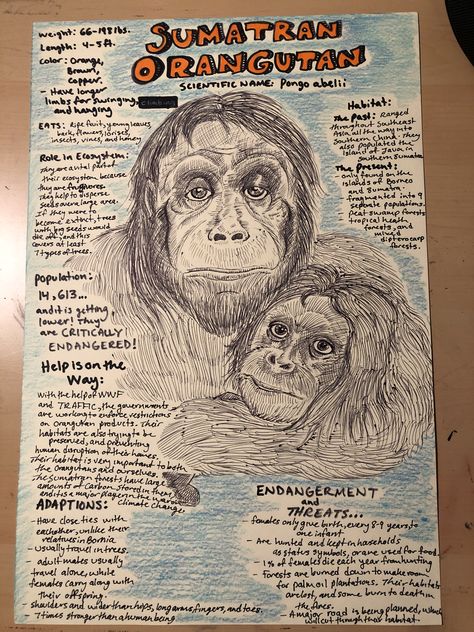 SUMATRAN
ORANGUTAN
SCIENTIFIC NAME: Pongo abelii
Weight: 66-198 lbs.
Length: 4-5ft.
Color: Orange,
Brown,
Copper.
- Have longer
limbs for swinging, climbing
and hanging
EATS: ripe fruit, young leaves,
bark, flowers, lorises,
insects, vines, and honey
Role in Ecosystem:
They are a vital part of
their ecosystem because
they are frugivores.
They help to disperse
seeds over a large area.
If they were to
become extinct, trees
with big seeds would
die off, and this
covers at least
7 types of trees.
Population:
14,613...
and it is getting
lower! They
are CRITICALLY
ENDANGERED!
Help is on the
Way:
With the help of WWF
and TRAFFIC, the governments
are working to enforce restrictions
on orangutan products. Their
habitats are also trying to be
preserved, and preventing
human disruption of their homes.
Their habitat is very important to both
the orangutans and ourselves.
The Sumatran forests have large
amounts of Carbon stored in them,
and it is a major player in the
Climate Change
ADAPTIONS:
- Have close ties with
eachother, unlike their
relatives in Bornia
- usually travel in trees.
- adult males usually
travel alone, while
females carry along with
their offspring.
- Shoulders and wider than hips, long arms, fingers, and toes.
- 7 times stronger than a human being.
Habitat:
The Past: Ranged
throughout Southeast
Asia, all the way into
Southern China. They
also populated the
Island of Java in
southern Sumatra.
The Present:
only found on the
islands of Borneo
and Sumatra.
fragmented into 9
seperate populations.
Peat swamp forests
tropical heath
forests, and
mixed
dipterocarp
forests.
ENDANGERMENT
and
THREATS...
- females only give birth, every 8-9 years to
one infant
- Are hunted and kept in households
as status symbols, or are used for food.
- 1% of females die each year from hunting
- Forests are burned down to make room
for palm oil plantations. Their habitats
are lost, and some burn to death in
the fires.
- A major road is being planned, which
will cut through their habitat.